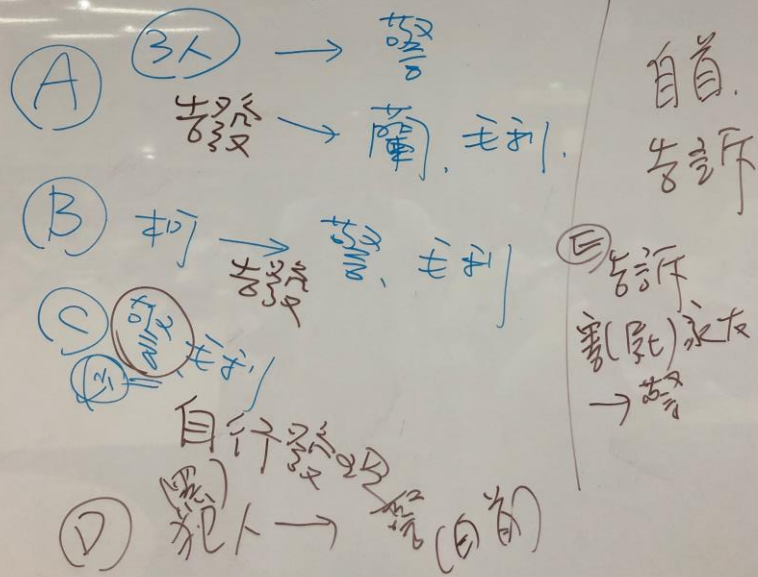 A 3人 → 警
告發 → 蘭、毛利.
B 柯 → 警、毛利
告發
C 警、毛利
自行發現
D 犯人 → 警(自首)
自首.
告訴
E 告訴
害(死)家友
→ 警